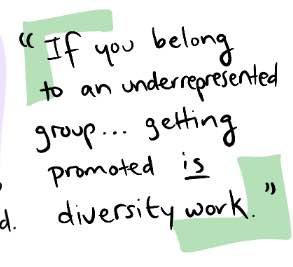 “If you belong
to an underrepresented
group... getting
promoted is
d. diversity work.”